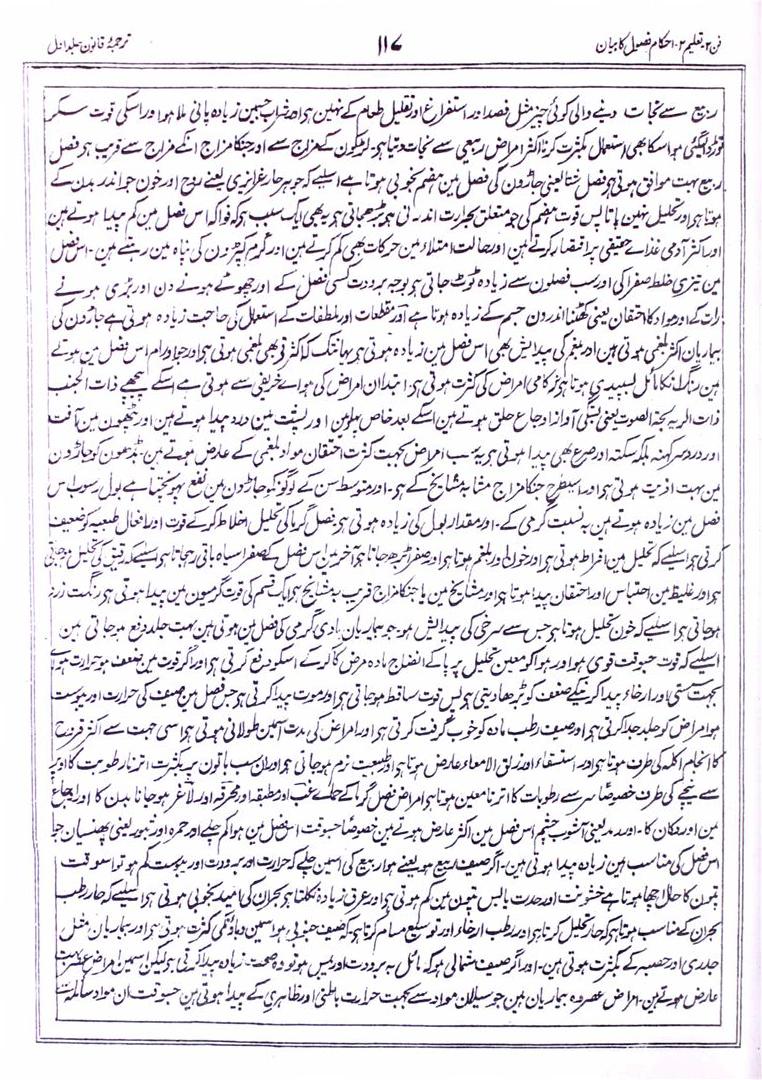 فن ۲۔ تعلیم ۲۔ احکام فصول کا بیان
۱۱۷
ترجمۂ قانون۔ جلد اول
ربیع سے نجات دینے والی کوئی چیز مثل فصد اور استفراغ اور تقلیل طعام کے نہین ہے اور شراب جسمین زیادہ پانی ملا ہوا اور اسکی قوت سکر
توڑ دیگئی ہو اسکا بھی استعمال بکثرت کرنا اکثر امراض ربیعی سے نجات دیتا ہے۔ لڑکون کے مزاج سے اور جنکا مزاج انکے مزاج سے قریب ہو فصل
ربیع بہت موافق ہوتی ہے فصل شتا یعنی جاڑون کی فصل مین ہضم بخوبی ہوتا ہے اسلیے کہ جوہر حار غریزی یعنے روح اور خون جو اندر بدن کے
ہوتا ہے اور تحلیل نہین پاتا پس قوت ہضم کی جو متعلق بحرارت اندرونی ہے بڑھجاتی ہے یہ بھی ایک سبب ہے کہ فواکہ اس فصل مین کم پیدا ہوتے ہین
اور اکثر آدمی غذاے حقیقی پر اقتصار کرتے ہین اور حالت امتلاء مین حرکات بھی کم کرتے ہین اور گرم کپڑون کی پناہ مین رہتے ہین۔ اس فصل
مین تیزی خلط صفرا کی اور سب فصلون سے زیادہ ٹوٹ جاتی ہے بوجہ برودت کسی فصل کے اور چھوٹے ہونے دن اور بڑی ہونے
رات کے اور مواد کا احتقان یعنی گھٹنا اندرون جسم کے زیادہ ہوتا ہے اور مقطعات اور ملطفات کے استعمال کی حاجت زیادہ ہوتی ہے جاڑون کی
بیماریان اکثر بلغمی ہوتی ہین اور بلغم کی پیدایش بھی اس فصل مین زیادہ ہوتی ہے یہانتک کہ اکثر قے بھی بلغمی ہوتی ہے اور جو اورام اس فصل مین ہوتے
ہین رنگ انکا مائل بسپیدی ہوتا ہے زکامی امراض کی کثرت ہوتی ہے ابتدا ان امراض کی ہواے خریفی سے ہوتی ہے اسکے پیچھے ذات الجنب
ذات الریہ بحۃ الصوت یعنی بستگی آواز اوجاع حلق ہوتے ہین اسکے بعد خاص پہلو مین اور پشت مین درد پیدا ہوتے ہین اور پٹھون مین آفت
اور درد سر کہنہ بلکہ سکتہ اور صرع بھی پیدا ہوتی ہے یہ سب امراض بجہت کثرت احتقان مواد بلغمی کے عارض ہوتے ہین۔ بڈھون کو جاڑون
مین بہت اذیت ہوتی ہے اور اسیطرح جنکا مزاج مشابہ مشایخ کے ہے۔ اور متوسط سن کے لوگونکو جاڑون مین نفع پہونچتا ہے بول رسوب اس
فصل مین زیادہ ہوتے ہین بہ نسبت گرمی کے۔ اور مقدار بول کی زیادہ ہوتی ہے فصل گرما کی تحلیل اخلاط کرکے قوت اور افعال طبعیہ کو ضعیف
کرتی ہے اسلیے کہ تحلیل مین افراط ہوتی ہے اور خون اور بلغم ہوتا ہے اور صفرا بڑھ جاتا ہے آخر مین اس فصل کے صفرا سیاہ باقی رہجاتا ہے اسلیے کہ رقیق کی تحلیل ہوجاتی
ہے اور غلیظ مین احتباس اور احتقان پیدا ہوتا ہے اور مشایخ مین یا جنکا مزاج قریب بہ مشایخ ہے ایک قسم کی قوت گرمیون مین پیدا ہوتی ہے رنگت زرد
ہوجاتی ہے اسلیے کہ خون تحلیل ہوتا ہے جس سے سرخی کی پیدایش ہے جو بیماریان بادی گرمی کی فصل مین ہوتی ہین بہت جلد دفع ہوجاتی ہین
اسلیے کہ قوت جبوقت قوی ہو اور ہوا کو معین تحلیل پر پاکے انضاج مادہ مرض کا کرکے اسکو دفع کرتی ہے اور اگر قوت مین ضعف ہو حرارت ہوا
بجہت سستی اور ارخاء پیدا کرنیکے ضعف کو بڑھا دیتی ہے پس قوت ساقط ہوجاتی ہے اور موت پیدا کرتی ہے جس فصل مین صیف کی حرارت اور یبوست
ہو امراض کو جلد جدا کرتی ہے اور صیف رطب مادہ کو خوب گرفت کرتی ہے اور امراض کی مدت اسمین طولانی ہوتی ہے اسی جہت سے اکثر قروح
کا انجام آکلہ کی طرف ہوتا ہے اور استسقاء اور زلق الامعاء عارض ہوتا ہے اور طبیعت نرم ہوجاتی ہے اور ان سب باتون پر بکثرت اترنا رطوبت کا اوپر
سے نیچے کی طرف خصوصاً سر سے رطوبات کا اترنا معین ہوتا ہے امراض فصل گرما کے حماے غب اور مطبقہ اور محرقہ اور لاغر ہوجانا بدن کا اور اوجاع
مین اور کان کا۔ اور رمد یعنی آشوب چشم اس فصل مین اکثر عارض ہوتے ہین خصوصاً جبوقت اس فصل مین ہوا کم چلے اور حمرہ اور بثور یعنی پھنسیان جو
اس فصل کی مناسب ہین زیادہ پیدا ہوتی ہین۔ اگر صیف ربیع ہو یعنے ہوا ربیع کی اسمین چلے کہ حرارت اور برودت اور یبوست کم ہو تو اسوقت
تپون کا حال اچھا ہوتا ہے خشونت اور حدت یابس تپون مین کم ہوتی ہے اور عرق زیادہ نکلتا ہے بحران کی امید بخوبی ہوتی ہے اسلیے کہ حار رطب
بحران کے مناسب ہوتا ہے کہ حار تحلیل کرتا ہے اور رطب ارخاء اور توسیع مسام کرتا ہے کہ صیف جنوبی ہو اسمین وباؤنکی کثرت ہوتی ہے اور بیماریان مثل
جدری اور حصبہ کے بکثرت ہوتی ہین۔ اور اگر صیف شمالی ہو کہ مائل بہ برودت اور یبس ہو تو وہ صحت زیادہ پیدا کرتی ہے لیکن اسمین امراض عصر بہت
عارض ہوتے ہین۔ امراض عصر وہ بیماریان ہین جو سیلان مواد سے بجہت حرارت باطنی اور ظاہری کے پیدا ہوتی ہین جبوقت ان مواد سائلہ سے